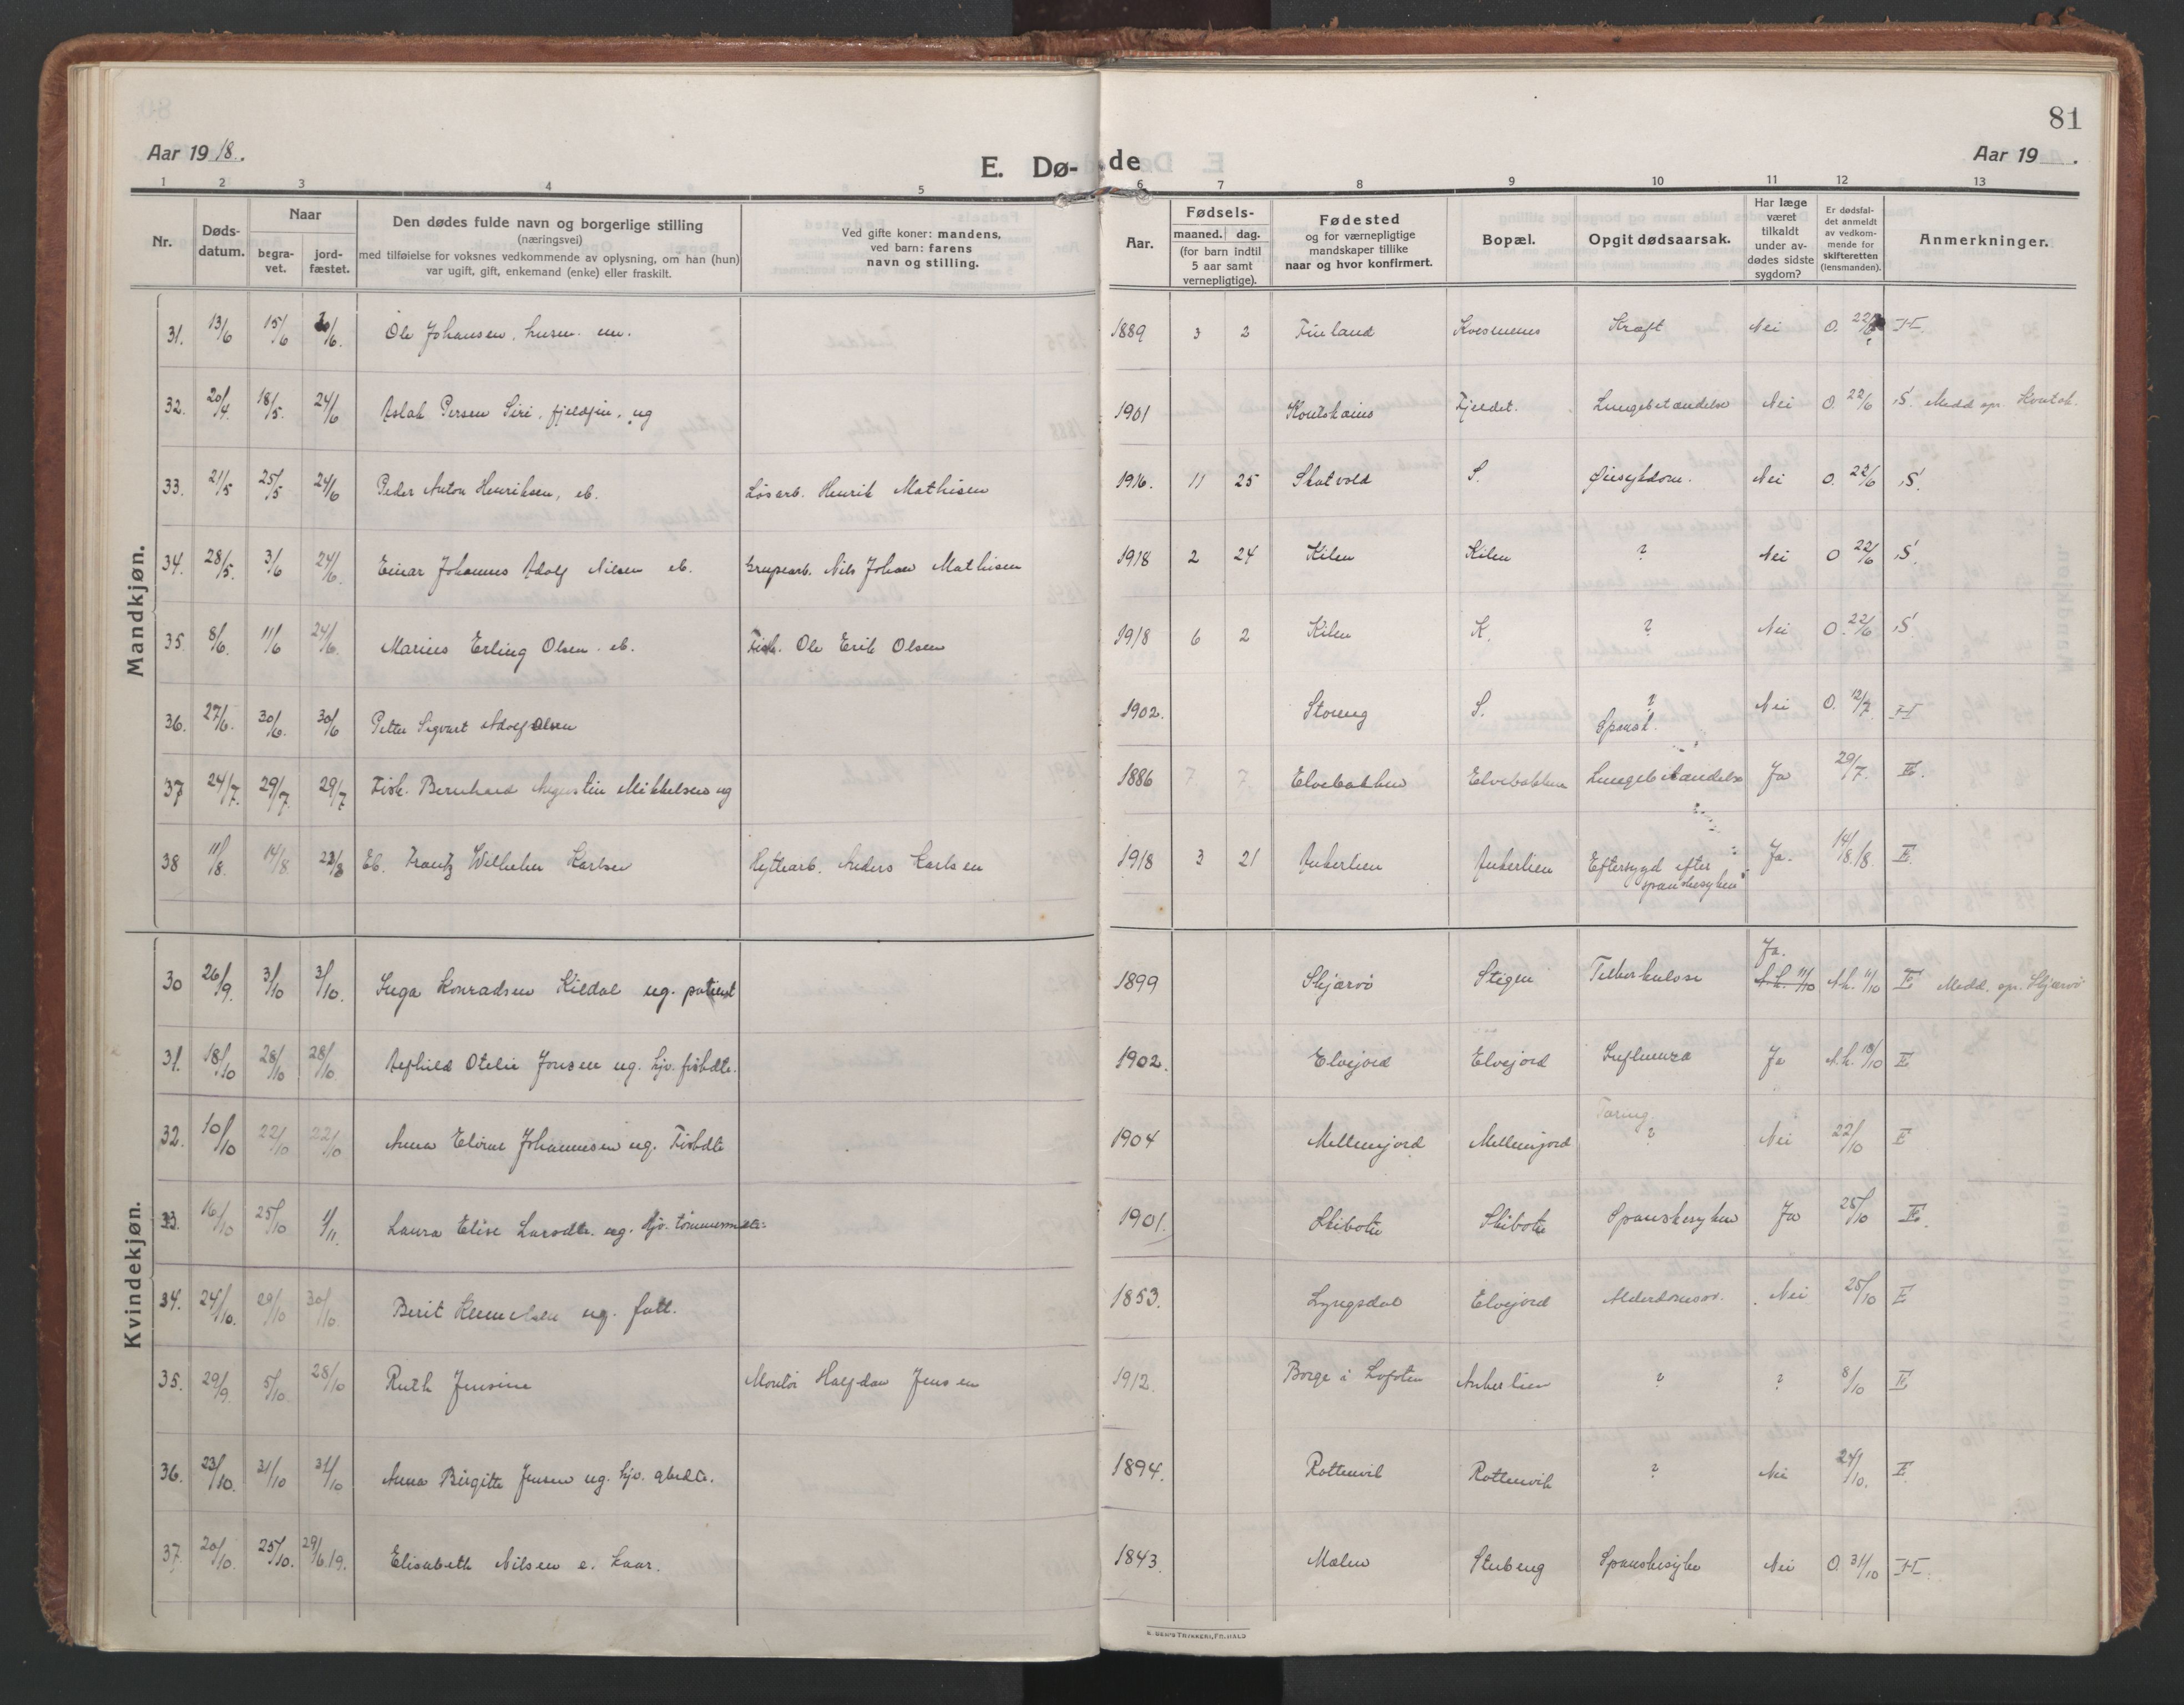 81
Aar 1918.
E. Dø-
de
Aar 19 .
1 2 3 4 5 6 7 8 9 10 11 12 13
Nr.
Døds-
datum.
Naar
begra-
vet.
jord-
fæstet.
Den dødes fulde navn og borgerlige stilling
(næringsvei)
med tilføielse for voksnes vedkommende av oplysning, om han (hun)
var ugift, gift, enkemand (enke) eller fraskilt.
Ved gifte koner: mandens,
ved barn: farens
navn og stilling.
Aar.
Fødsels-
maaned. dag.
(for barn indtil
5 aar samt
vernepligtige).
Fødested
og for værnepligtige
mandskaper tillike
naar og hvor konfirmert.
Bopæl.
Opgit dødsaarsak.
Har læge
været
tilkaldt
under av-
dødes sidste
sygdom?
Er dødsfal-
det anmeldt
av vedkom-
mende for
skifteretten
(lensmanden).
Anmerkninger.
Mandkjøn.
31. 13/6 15/6 30/6. Ole Johansen. husm. um. 1889 3 2 Finland Kvesmenes Kræft Nei O. 22/6 H.
32. 20/4 18/5. 24/6 Aslak Persen Siri. fjeldfin. ug 1901 Koutokeino Fjeldet. Lungebetændelse Nei O. 22/6 S. Medd. spr. Koutok.
33. 21/5 25/5 24/6 Peder Anton Henriksen, eb. Løsarb. Henrik Mathisen 1916. 11 25 Skatvold S. Øiesykdom. Nei O. 22/6 S.
34. 28/5. 3/6 24/6. Einar Johannes Adolf Nilsen eb. Grupearb. Nils Johan Mathisen 1918 2 24 Kilen Kilen ? Nei O 22/6 S.
35. 8/6. 11/6 24/6. Marius Erling Olsen. eb. Fisk. Ole Erik Olsen 1918 6 2 Kilen K. ? Nei O. 22/6 S.
36. 27/6. 30/6. 30/6 Petter Sigvart Adolf Olsen 1902. Storeng S. ? Nei O. 12/7. H
37 24/7. 29/7 29/7 Fisk. Bernhard Augustin Mikkelsen ug 1886 7 7 Elvebakken Elvebakken Spansk. Lungebetændelse Ja 29/7. E.
38 11/8. 14/8. 23/8 Eb. Frantz Wilhelm Karlsen Hyttearb. Anders Karlsen 1918 3 21 Ankerlien Ankerlien Eftersygd efter
spanskesyken Ja. 14/8.18. E.
Kvindekjøn.
30 26/9. 3/10 3/10. Inga Konradsen Kildal ug. patient 1899 Skjærvø Stigen Tuberkulose Ja.
A.L. 11/10 A.L. 11/10 E Medd. spr. Skjærvø
31. 18/10 28/10 28/10 Alfhild Otelie Jonsen ug. hjv. fiskdtr. 1902. Elvejord Elvejord Influensa Ja A.L. 19/10 E
32. 10/10 22/10 22/10 Anna Elvine Johannesen ug. Fiskdtr 1904 Mellemjord Mellemjord Tæring
? Nei 22/10 E
33. 16/10 25/10 1/11. Laura Elise Larsdtr. ug. hjv. tømmerm.dtr: 1901. Skibotn Skibotn Spanskesyken Ja 25/10 E.
34. 24/10. 29/10 30/10. Berit Klemetsen ug. fatt. 1853. Lyngsdal Elvejord Alderdomssv. Nei 25/10 E
35. 29/9. 5/10. 28/10 Ruth Jensine Montør Halfdan Jensen 1912. Borge i Lofoten Ankerlien ? ? 8/10 E
36. 23/10. 31/10 31/10 Anna Birgitte Jensen ug. hjv. gbrdtr. 1894. Rottenvik Rottenvik ? Nei 24/10. E
37. 20/10. 25/10. 29/6.19. Elisabeth Nilsen e. kaar. 1843. Malen Stubeng Spanskesyke Nei O. 31/10 H.